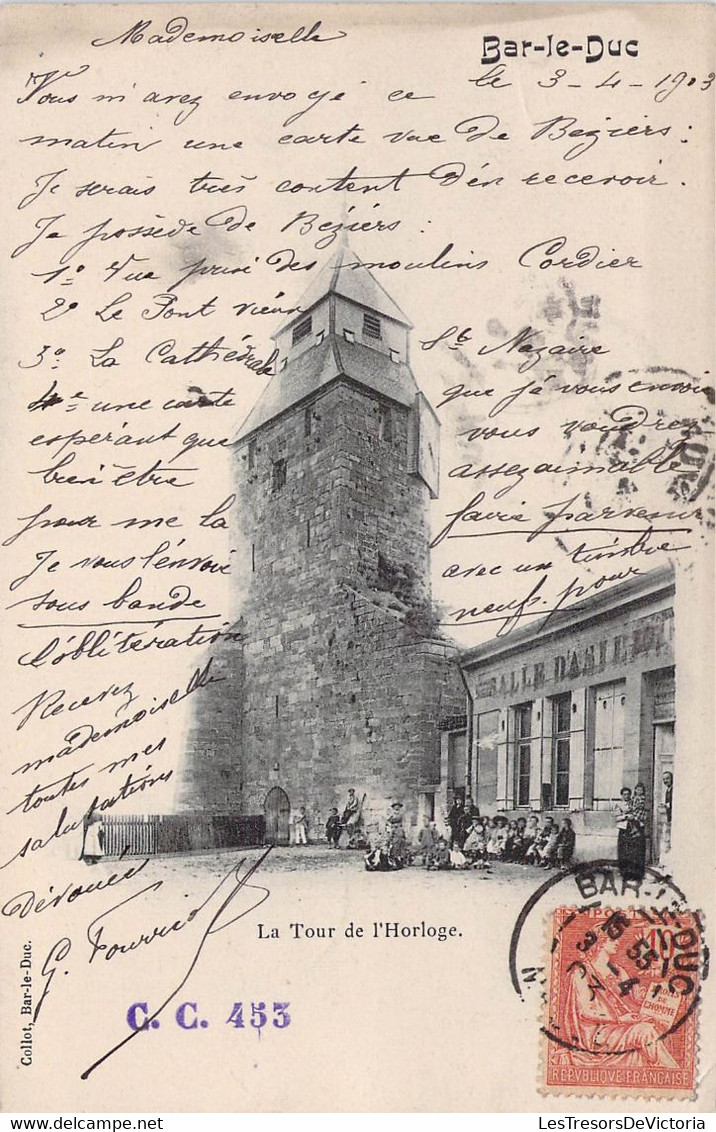 Mademoiselle
Bar-le-Duc
le 3-4-1903
Vous m'avez envoyé ce
matin une carte vue de Béziers:
Je serais très content d'en recevoir.
Je possède de Béziers:
1º Vue prise des moulins Cordier
2º Le Pont vieux
3º La Cathédrale St Nazaire
4º une carte que je vous envoie
espérant que vous voudrez
bien être assez aimable
pour me la faire parvenir
Je vous l'envoie avec un timbre
sous bande neuf pour
l'oblitération
Recevez
mademoiselle
toutes mes
salutations
Dévoué
SALLE D'ASILE
La Tour de l'Horloge.
Collot, Bar-le-Duc.
C. C. 453
BAR-LE-DUC
16 55
3 - 4
POSTES
10
DROITS
DE
L'HOMME
REPVBLIQVE FRANÇAISE
LesTresorsDeVictoria